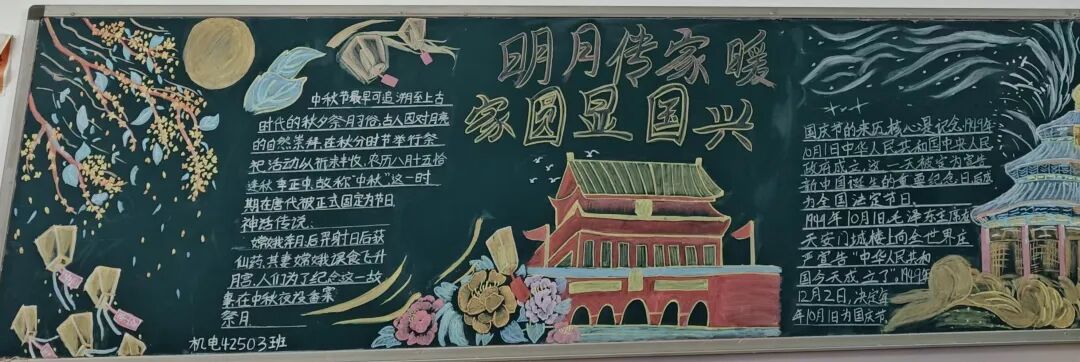 明月传家暖
家圆显国兴
中秋节最早可追溯至上古
时代的秋夕祭月习俗,古人因对月亮
的自然崇拜,在秋分时节举行祭
祀活动以祈求丰收,农历八月十五恰
逢秋季正中,故称"中秋"这一时
期在唐代被正式固定为节日
神话传说:
嫦娥奔月,后羿射日后获
仙药,其妻嫦娥误食飞升
月宫,人们为了纪念这一故
事在中秋夜设备案
祭月
机电42503班
国庆节的来历核心是记念1949年
10月1日中华人民共和国中央人民
政府成立,这一天被定为宣告
新中国诞生的重要纪念日后成
为全国法定节日、
1949年10月1日毛泽东主席在
天安门城楼上向全世界庄
严宣告"中华人民共和
国今天成立了"。1949年
12月2日,决定每
年10月1日为国庆节